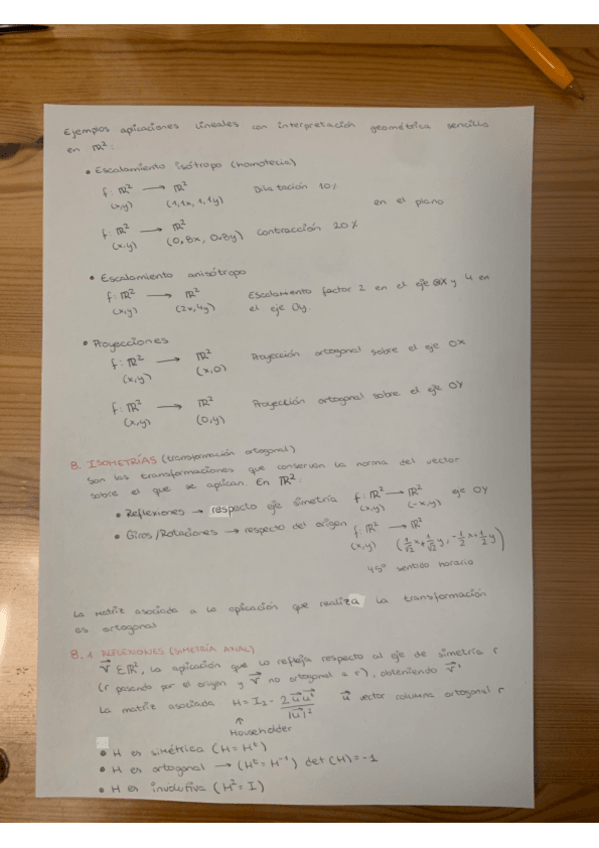 Ejemplos aplicaciones lineales con interpretación geométrica sencilla
en ℝ²:
• Escalamiento isótropo (homotecia)
f: ℝ² → ℝ² Dilatación 10%
(x,y) (1,1x, 1,1y) en el plano
f: ℝ² → ℝ² Contracción 20%
(x,y) (0,8x, 0,8y)
• Escalamiento anisótropo
f: ℝ² → ℝ² Escalamiento factor 2 en el eje OX y 4 en
(x,y) (2x,4y) el eje Oy.
• Proyecciones
f: ℝ² → ℝ² Proyección ortogonal sobre el eje OX
(x,y) (x,0)
f: ℝ² → ℝ² Proyección ortogonal sobre el eje OY
(x,y) (0,y)
8. ISOMETRÍAS (transformación ortogonal)
Son las transformaciones que conservan la norma del vector
sobre el que se aplican. En ℝ²:
• Reflexiones → respecto eje simetría f: ℝ² → ℝ² eje OY
(x,y) (-x,y)
• Giros/Rotaciones → respecto del origen f: ℝ² → ℝ²
(x,y) (1/√2 x + 1/√2 y, -1/2 x + 1/2 y)
45º sentido horario
La matriz asociada a la aplicación que realiza la transformación
es ortogonal
8.1 REFLEXIONES (SIMETRÍA AXIAL)
v⃗ ∈ ℝ², la aplicación que lo refleja respecto al eje de simetría r
(r pasando por el origen y v⃗ no ortogonal a r), obteniendo v⃗'
La matriz asociada H = I₂ - 2u⃗u⃗ᵗ/|u⃗|² u⃗ vector columna ortogonal r
↑
Householder
• H es simétrica (H = Hᵗ)
• H es ortogonal → (Hᵗ = H⁻¹) det (H) = -1
• H es involutiva (H² = I)